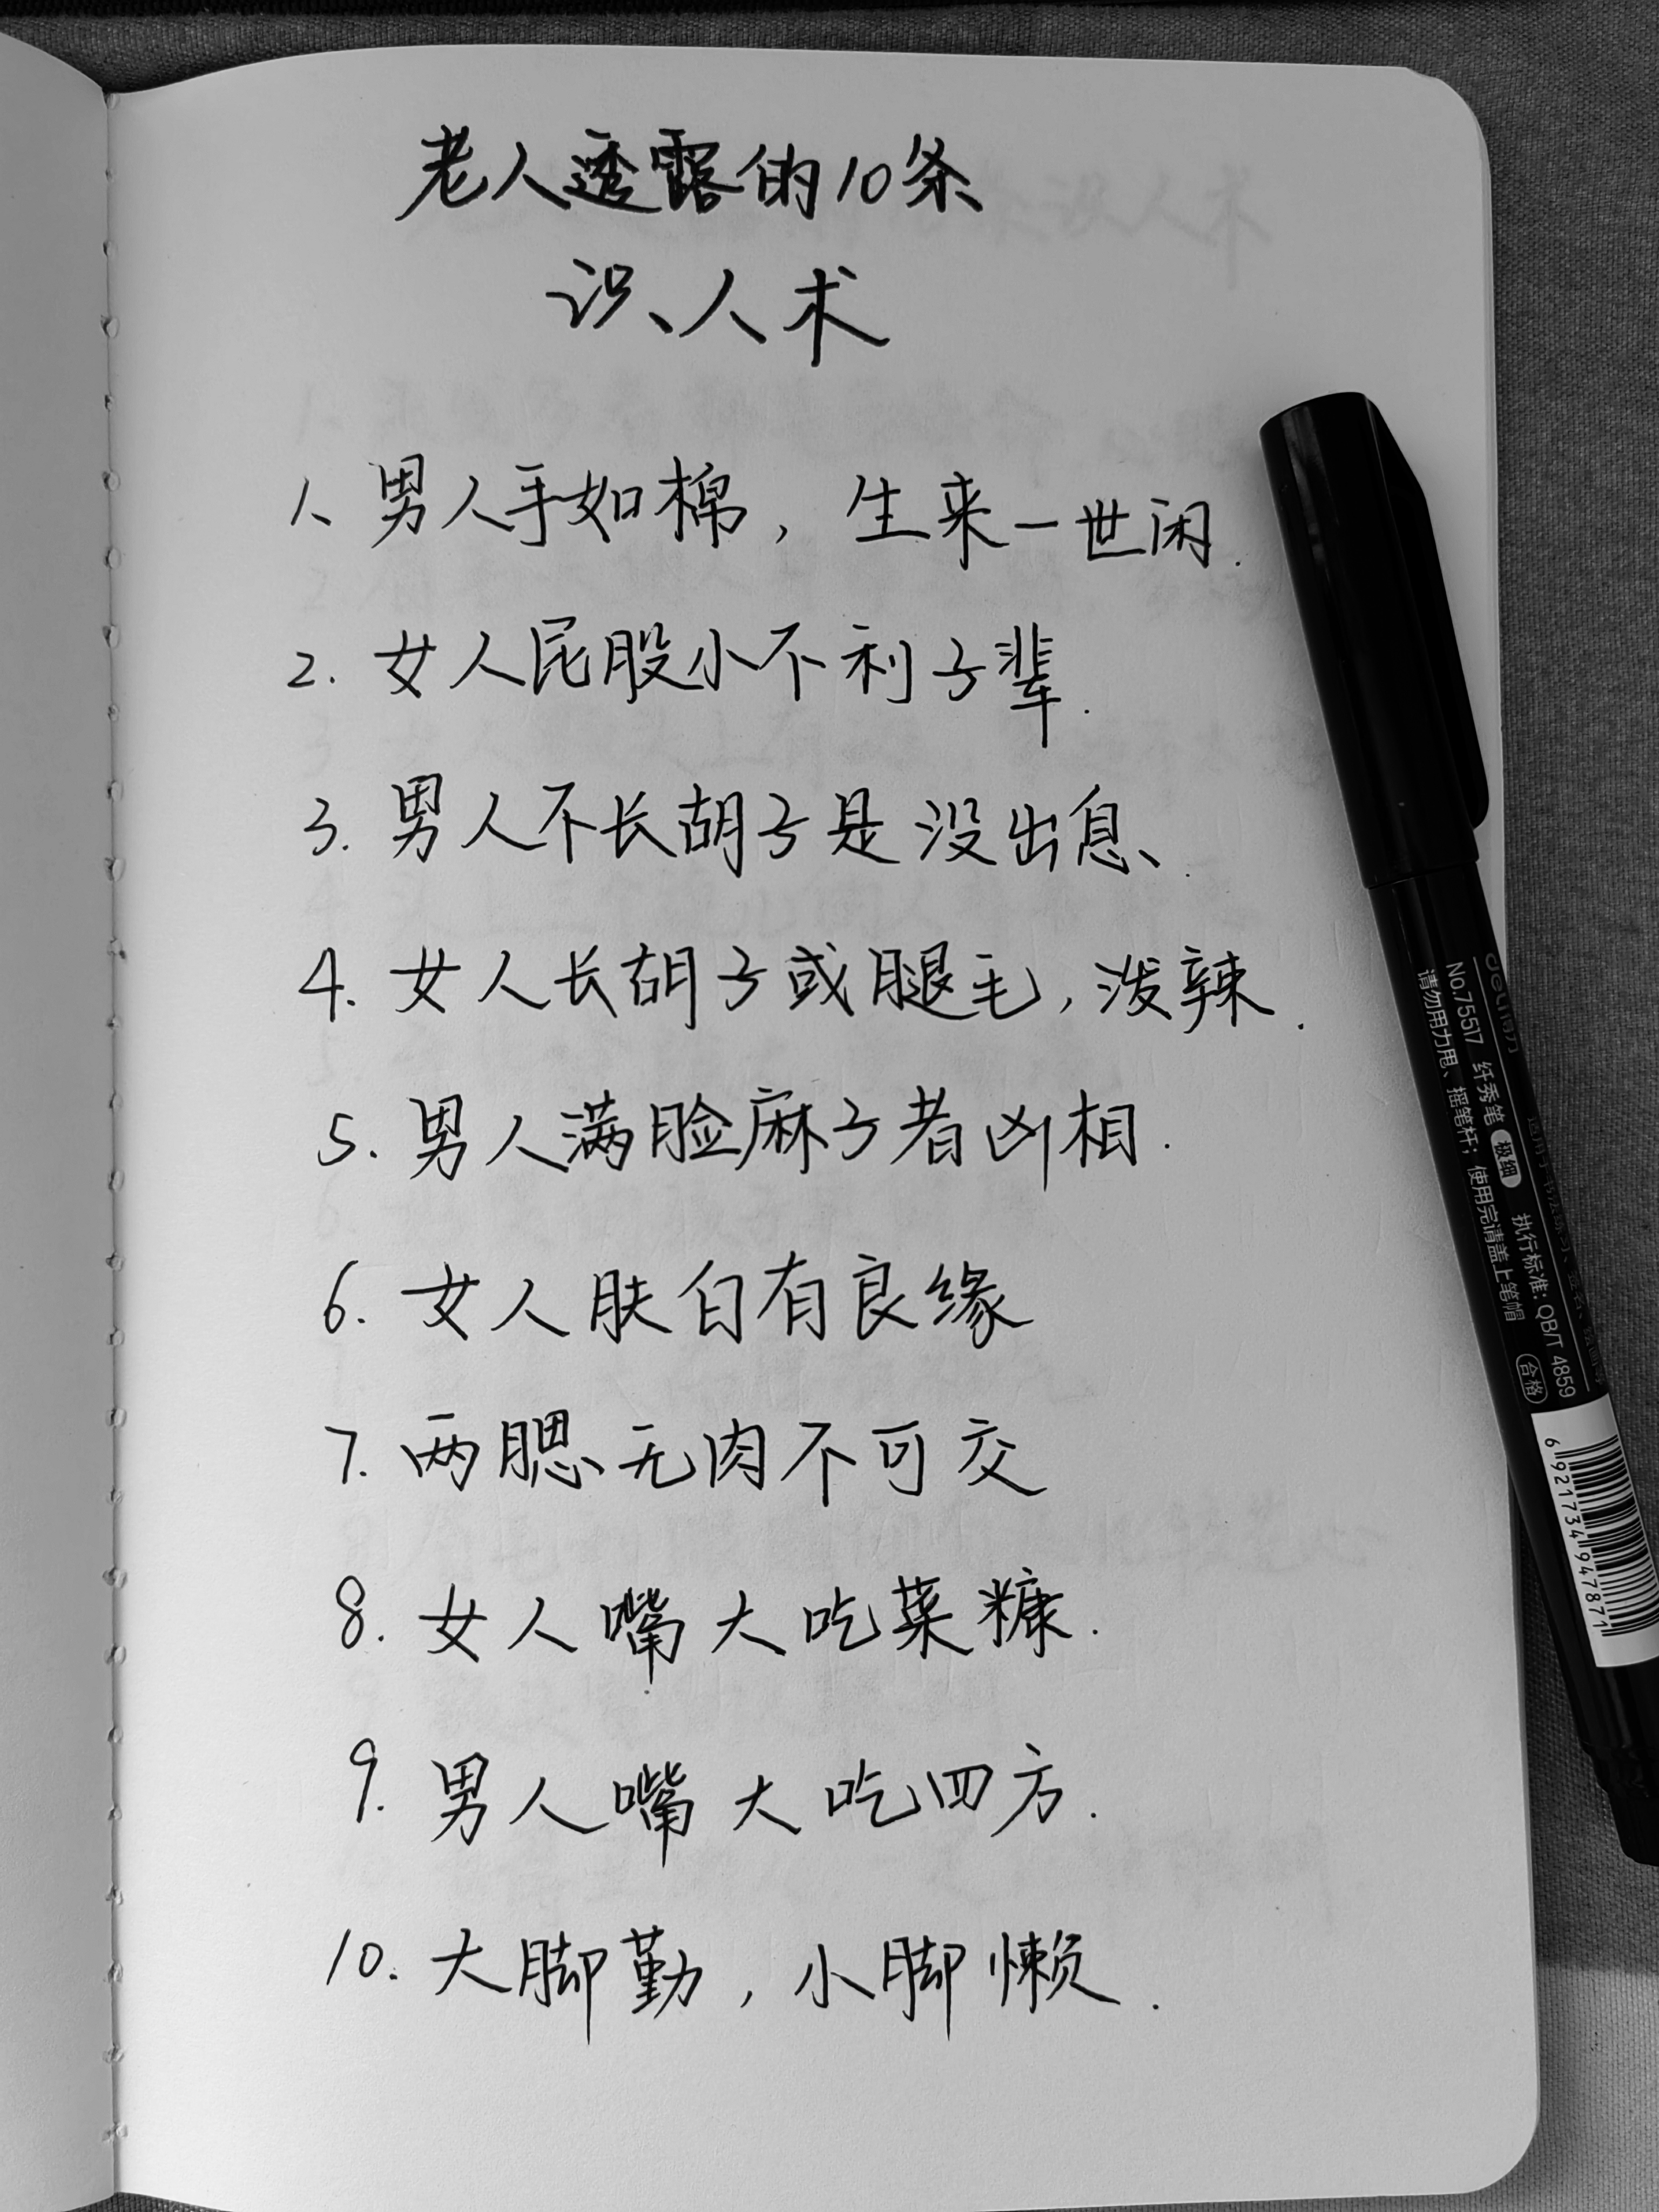 老人透露的10条
识人术
1、男人手如棉，生来一世闲.
2.女人屁股小不利子辈.
3.男人不长胡子是没出息.
4.女人长胡子或腿毛，泼辣.
5.男人满脸麻子者凶相.
6.女人肤白有良缘
7.两腮无肉不可交
8.女人嘴大吃菜糠.
9.男人嘴大吃四方.
10.大脚勤，小脚懒.
deli得力
No.75517 纤秀笔 极细 执行标准: QB/T 4859 合格
请勿用力甩、摇笔杆；使用完请盖上笔帽
6 921734 947871